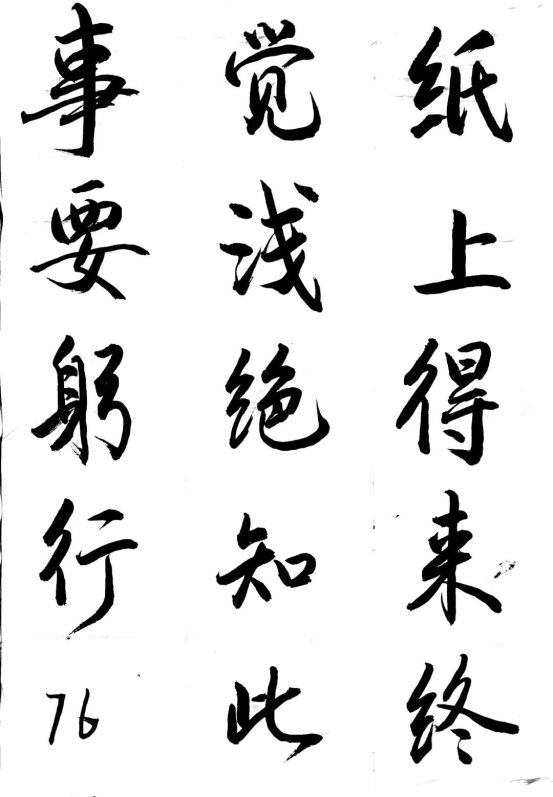 纸上得来终
觉浅绝知此
事要躬行
76